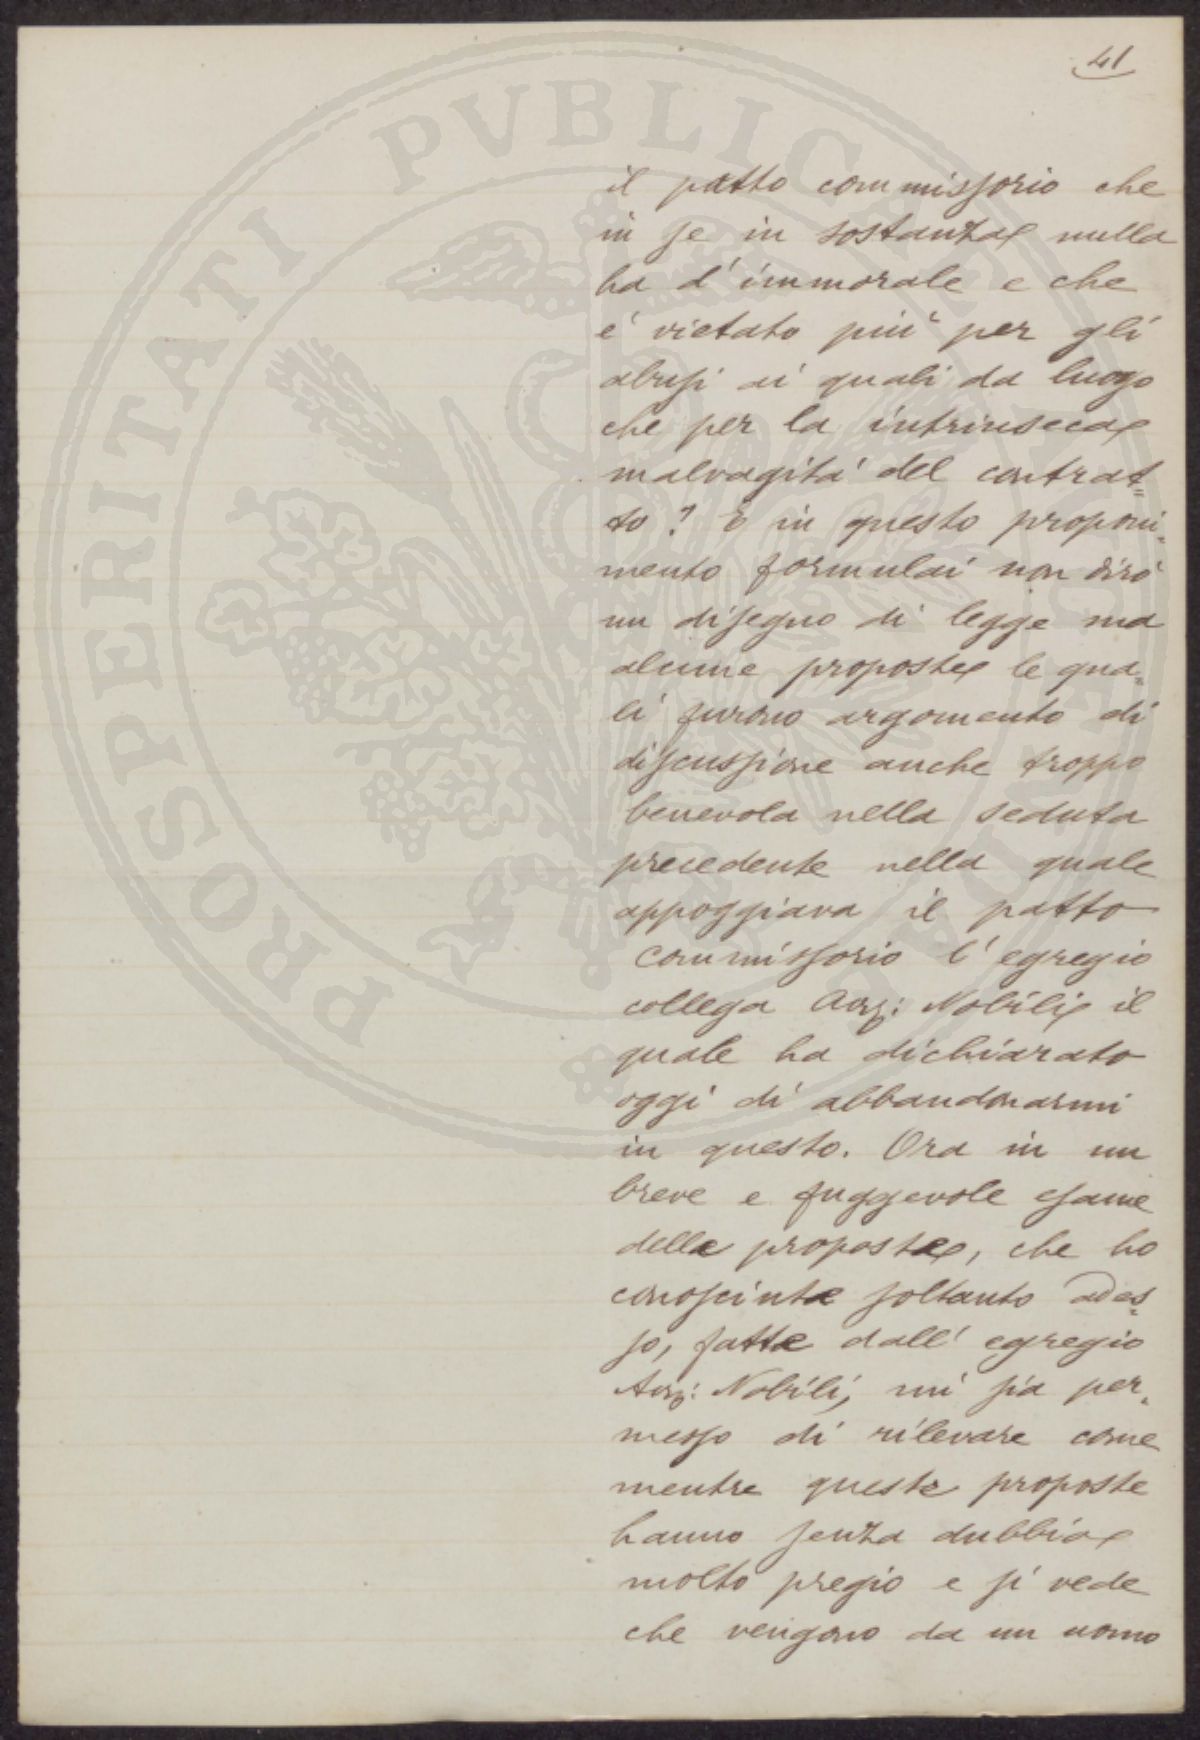 41
il patto commissorio che
in se in sostanza nulla
ha d'immorale e che
é vietato piú per gli
abusi ai quali da luogo
che per la intrinseca
malvagitá del contrat=
to? E in questo proponi=
mento formulai non diró
un disegno di legge ma
alcune proposte le qua=
li furono argomento di
discussione anche troppo
benevola nella seduta
precedente nella quale
appoggiava il patto
commissorio l'egregio
collega Avv: Nobili il
quale ha dichiarato
oggi di abbandonarmi
in questo. Ora in un
breve e fuggevole esame
delle proposte, che ho
conosciute soltanto ades=
so, fatte dall'egregio
Avv: Nobili, mi sia per=
messo di rilevare come
mentre queste proposte
hanno senza dubbio
molto pregio e si vede
che vengono da un uomo
PROSPERITATI PVBLICAE